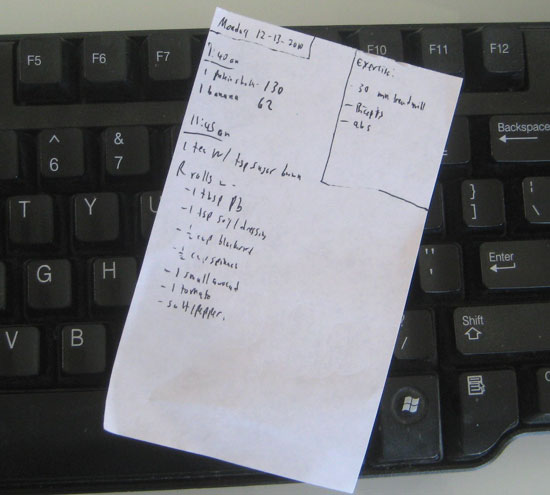 Monday 12-13-2010
7:45am
1 protein shake: 130
1 banana 62
11:45am
1 tea w/ tsp sugar
2 rolls w -
- 1 tbsp pb
- 1 tsp soy/dressing
- ½ cup
- ½ cup spinach
- 1 small avocad
- 1 tomato
- salt/pepper.
Exercise:
- 30 min treadmill
- Biceps
- abs
F5
F6
F7
F10
F11
F12
^
6
&
7
Backspace
T
Y
U
}
]
|
\
G
H
J
"
'
Enter
V
B
/
Shift